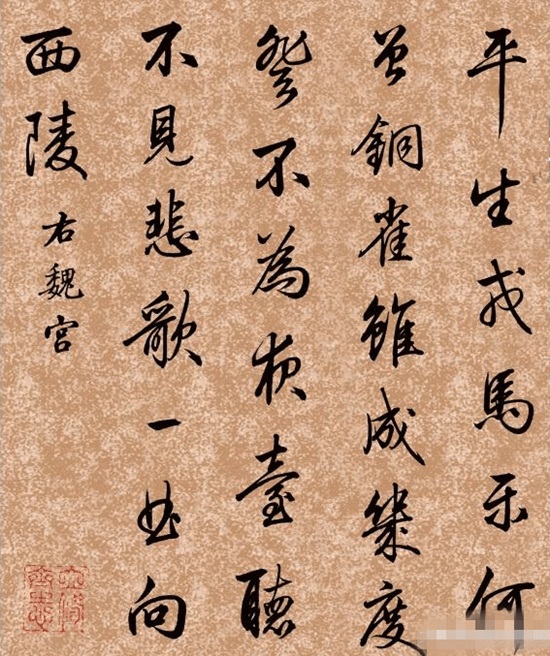 平生戎馬示何
曾銅雀雖成幾度
登不為夜臺聽
不見悲歌一曲向
西陵
右魏宮